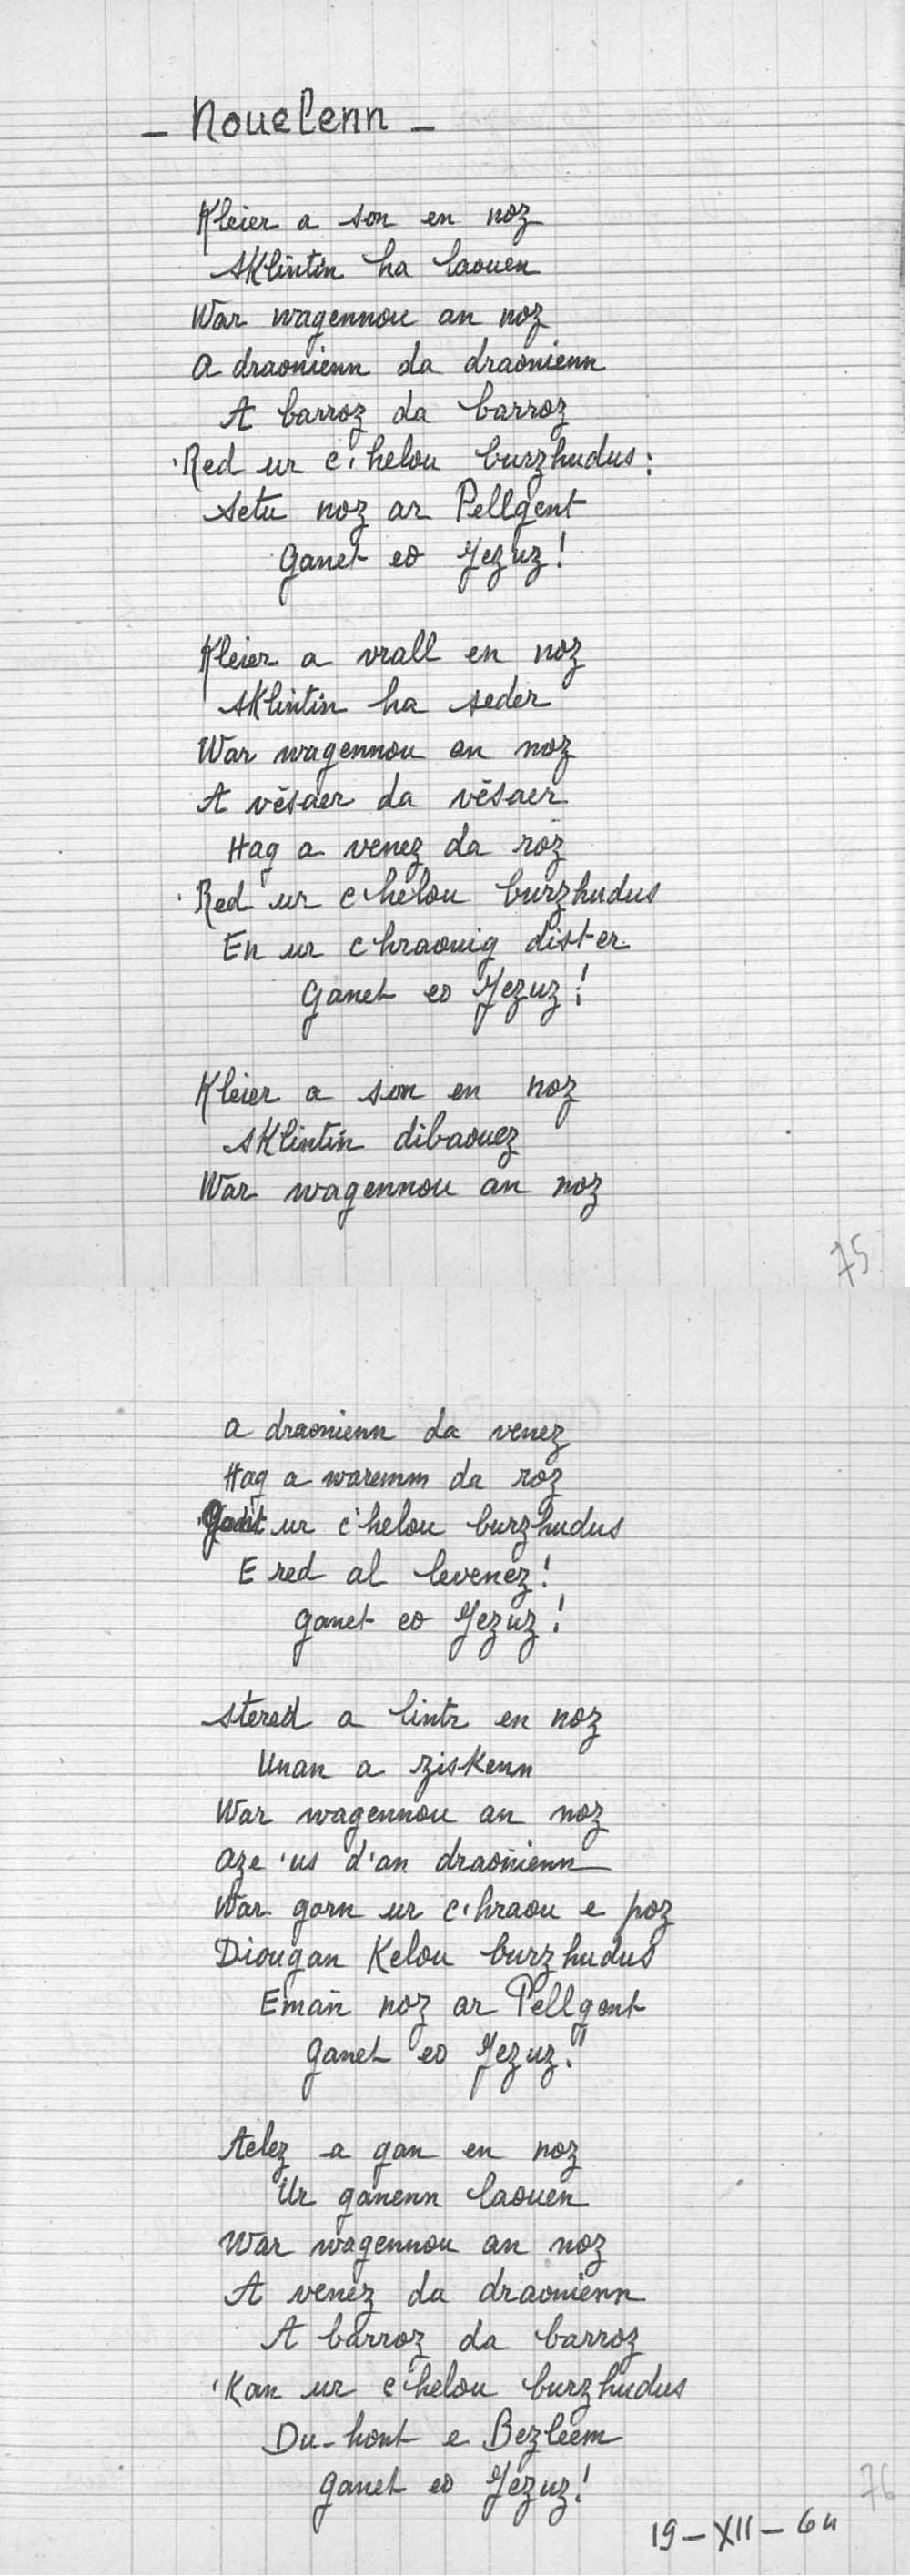 - Nouelenn -
Kleier a son en noz
Sklintin ha laouen
War wagennou an noz
A draonienn da draonienn
A barroz da barroz
'Red ur c'helou burzhudus :
Setu noz ar Pellgent
Ganet eo Jezuz !
Kleier a vrall en noz
Sklintin ha seder
War wagennou an noz
A vêsaer da vêsaer
Hag a venez da roz
'Red ur c'helou burzhudus
En ur c'hraouig dister
Ganet eo Jezuz !
Kleier a son en noz
Sklintin dibaouez
War wagennou an noz
75
A draonienn da venez
Hag a waremm da roz
Gant ur c'helou burzhudus
E red al levenez !
Ganet eo Jezuz !
Stered a lintr en noz
Unan a ziskenn
War wagennou an noz
Aze 'us d'an draonienn
War gorn ur c'hraou e poz
Diougan kelou burzhudus
Emañ noz ar Pellgent
Ganet eo Jezuz !!
Aelez a gan en noz
Ur ganenn laouen
War wagennou an noz
A venez da draonienn
A barroz da barroz
'Kan ur c'helou burzhudus
Du-hont e Bezleem
Ganet eo Jezuz !
76
19-XII-64